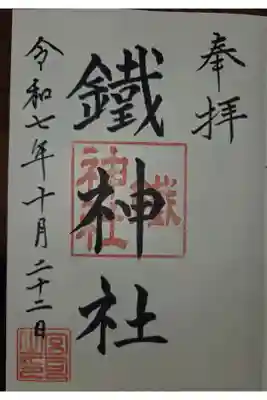 奉拝
鐵神社
令和七年十月二十二日